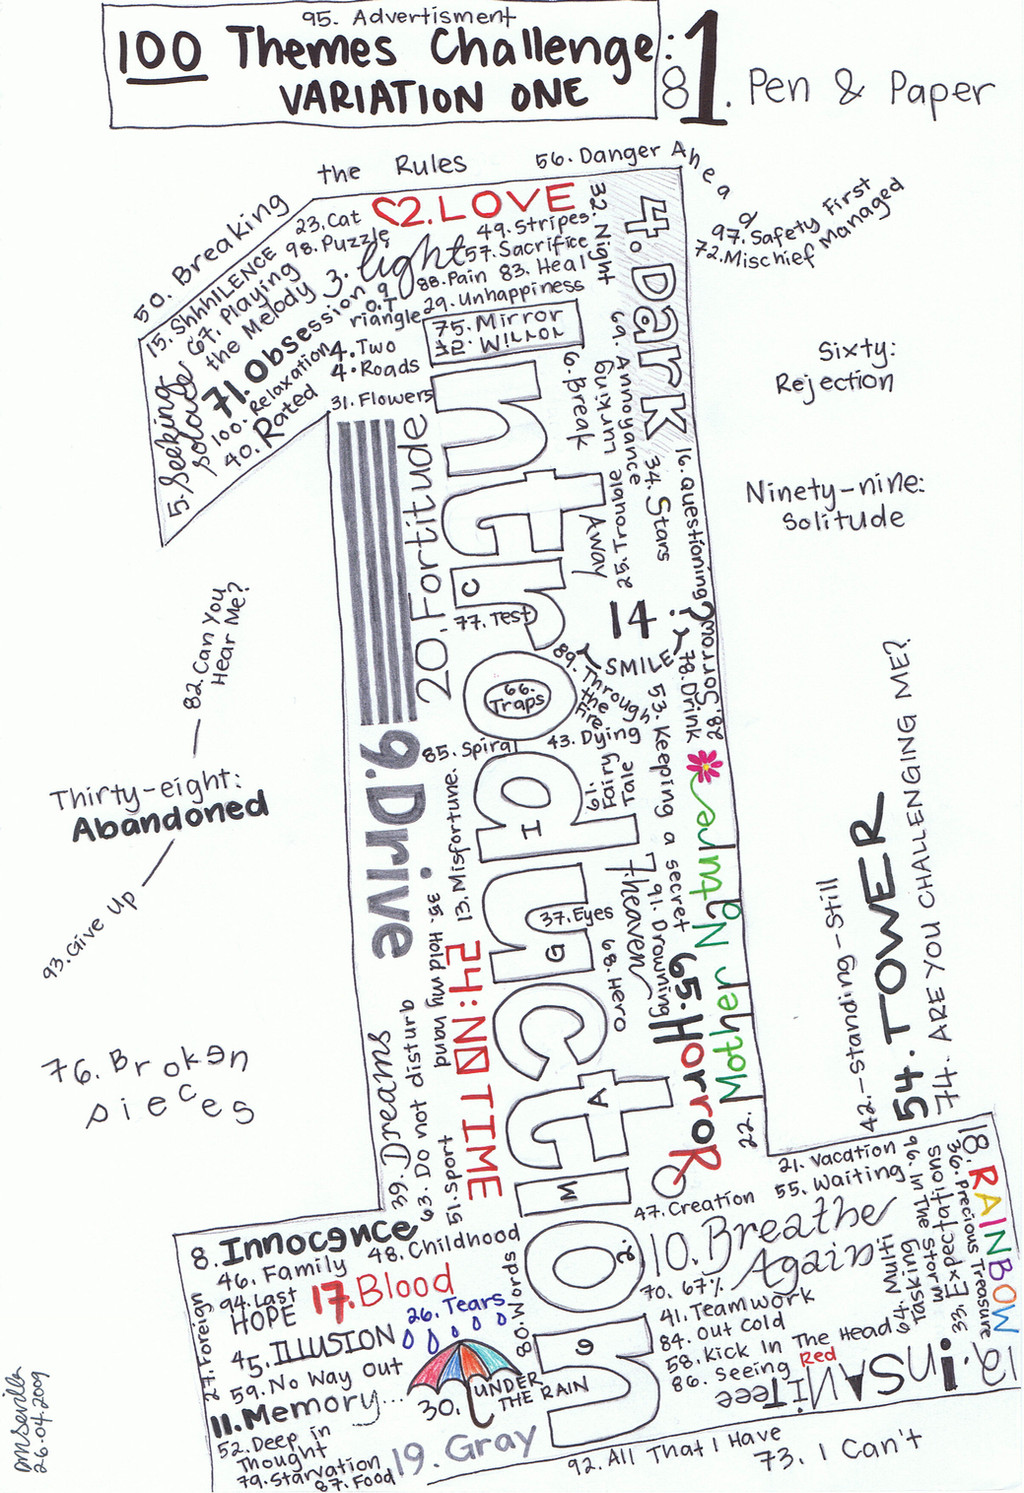 95. Advertisment
100 Themes Challenge:
VARIATION ONE
81. Pen & Paper
50. Breaking the Rules
56. Danger Ahead
97. Safety First
72. Mischief Managed
23. Cat
2. LOVE
98. Puzzle
49. Stripes
32. Night
4. Dark
15. ShhhILENCE
67. Playing
the Melody
3. light
57. Sacrifice
88. Pain
83. Heal
29. Unhappiness
5. Seeking
Solace
71. Obsession
90. Triangle
75. Mirror
100. Relaxation
40. Rated
4. Two
4. Roads
31. Flowers
6. Break
Away
69. Annoyance
25. Trouble
Lurking
34. Stars
16. Questioning?
Sixty:
Rejection
Ninety-nine:
Solitude
Introduction
20. Fortitude
77. Test
14
SMILE
66.
Traps
89. Through
the
Fire
78. Drink
28. Sorrow
85. Spiral
43. Dying
53. Keeping a secret
61. Fairy
Tale
9. Drive
13. Misfortune
82. Can You
Hear Me?
Thirty-eight:
Abandoned
93. Give Up
76. Broken
pieces
35. Hold my hand
24: NO TIME
37. Eyes
7. heaven
91. Drowning
68. Hero
65. Horror
22. Mother Nature
42. -Standing-Still
54. TOWER
74. ARE YOU CHALLENGING ME?
39. Dreams
63. Do not disturb
51. Sport
C
I
G
A
M
2.
6
47. Creation
21. Vacation
55. Waiting
10. Breathe
Again
70. 67%
41. Teamwork
84. Out Cold
58. Kick In The Head
86. Seeing Red
64. Multi
Tasking
96. In The Storm
33. Expectations
36. Precious Treasure
18. RAINBOW
12. iNSANiTeee
8. Innocence
48. Childhood
46. Family
94. Last
HOPE
17. Blood
26. Tears
80. Words
27. Foreign
45. ILLUSION
59. No Way Out
11. Memory...
30. UNDER
THE RAIN
52. Deep in
Thought
79. Starvation
87. Food
19. Gray
92. All That I Have
73. I Can't
DMSevilla
26.04.2009